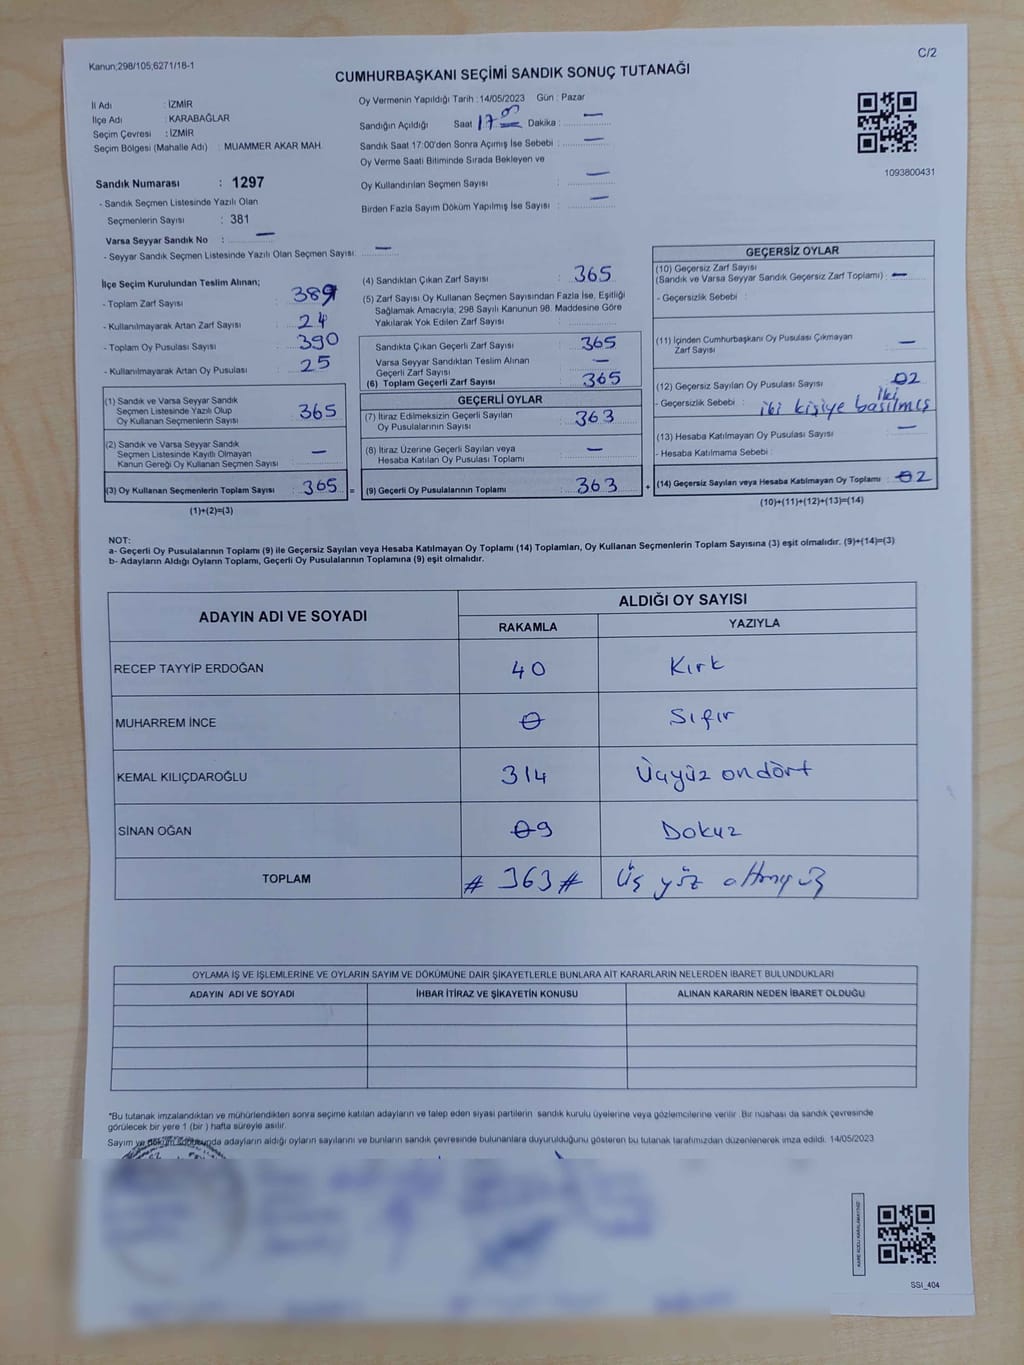 Kanun;298/105;6271/18-1
C/2
CUMHURBAŞKANI SEÇİMİ SANDIK SONUÇ TUTANAĞI
İl Adı : İZMİR
İlçe Adı : KARABAĞLAR
Seçim Çevresi : İZMİR
Seçim Bölgesi (Mahalle Adı) : MUAMMER AKAR MAH.
Sandık Numarası : 1297
- Sandık Seçmen Listesinde Yazılı Olan
Seçmenlerin Sayısı : 381
Varsa Seyyar Sandık No : —
- Seyyar Sandık Seçmen Listesinde Yazılı Olan Seçmen Sayısı: —
Oy Vermenin Yapıldığı Tarih : 14/05/2023 Gün : Pazar
Sandığın Açıldığı Saat 17 00 Dakika : —
Sandık Saat 17:00'den Sonra Açımış İse Sebebi : —
Oy Verme Saati Bitiminde Sırada Bekleyen ve
Oy Kullandırılan Seçmen Sayısı : —
Birden Fazla Sayım Döküm Yapılmış İse Sayısı : —
1093800431
İlçe Seçim Kurulundan Teslim Alınan;
- Toplam Zarf Sayısı : 389
- Kullanılmayarak Artan Zarf Sayısı : 24
- Toplam Oy Pusulası Sayısı : 390
- Kullanılmayarak Artan Oy Pusulası : 25
(1) Sandık ve Varsa Seyyar Sandık
Seçmen Listesinde Yazılı Olup
Oy Kullanan Seçmenlerin Sayısı : 365
(2) Sandık ve Varsa Seyyar Sandık
Seçmen Listesinde Kayıtlı Olmayan
Kanun Gereği Oy Kullanan Seçmen Sayısı : —
(3) Oy Kullanan Seçmenlerin Toplam Sayısı : 365 =
(1)+(2)=(3)
(4) Sandıktan Çıkan Zarf Sayısı : 365
(5) Zarf Sayısı Oy Kullanan Seçmen Sayısından Fazla İse, Eşitliği
Sağlamak Amacıyla; 298 Sayılı Kanunun 98. Maddesine Göre
Yakılarak Yok Edilen Zarf Sayısı :
Sandıkta Çıkan Geçerli Zarf Sayısı : 365
Varsa Seyyar Sandıktan Teslim Alınan
Geçerli Zarf Sayısı : —
(6) Toplam Geçerli Zarf Sayısı : 365
GEÇERLİ OYLAR
(7) İtiraz Edilmeksizin Geçerli Sayılan
Oy Pusulalarının Sayısı : 363
(8) İtiraz Üzerine Geçerli Sayılan veya
Hesaba Katılan Oy Pusulası Toplamı : —
(9) Geçerli Oy Pusulalarının Toplamı : 363 +
GEÇERSİZ OYLAR
(10) Geçersiz Zarf Sayısı
(Sandık ve Varsa Seyyar Sandık Geçersiz Zarf Toplamı) : —
- Geçersizlik Sebebi :
(11) İçinden Cumhurbaşkanı Oy Pusulası Çıkmayan
Zarf Sayısı : —
(12) Geçersiz Sayılan Oy Pusulası Sayısı : 02
iki
- Geçersizlik Sebebi : iki kişiye basılmış
(13) Hesaba Katılmayan Oy Pusulası Sayısı : —
- Hesaba Katılmama Sebebi :
(14) Geçersiz Sayılan veya Hesaba Katılmayan Oy Toplamı : 02
(10)+(11)+(12)+(13)=(14)
NOT:
a- Geçerli Oy Pusulalarının Toplamı (9) ile Geçersiz Sayılan veya Hesaba Katılmayan Oy Toplamı (14) Toplamları, Oy Kullanan Seçmenlerin Toplam Sayısına (3) eşit olmalıdır. (9)+(14)=(3)
b- Adayların Aldığı Oyların Toplamı, Geçerli Oy Pusulalarının Toplamına (9) eşit olmalıdır.
ADAYIN ADI VE SOYADI ALDIĞI OY SAYISI
RAKAMLA YAZIYLA
RECEP TAYYİP ERDOĞAN 40 Kırk
MUHARREM İNCE 0 Sıfır
KEMAL KILIÇDAROĞLU 314 Üçyüz ondört
SİNAN OĞAN 09 Dokuz
TOPLAM # 363 # Üç yüz altmışüç
OYLAMA İŞ VE İŞLEMLERİNE VE OYLARIN SAYIM VE DÖKÜMÜNE DAİR ŞİKAYETLERLE BUNLARA AİT KARARLARIN NELERDEN İBARET BULUNDUKLARI
ADAYIN ADI VE SOYADI İHBAR İTİRAZ VE ŞİKAYETİN KONUSU ALINAN KARARIN NEDEN İBARET OLDUĞU
*Bu tutanak imzalandıktan ve mühürlendikten sonra seçime katılan adayların ve talep eden siyasi partilerin sandık kurulu üyelerine veya gözlemcilerine verilir. Bir nüshası da sandık çevresinde
görülecek bir yere 1 (bir ) hafta süreyle asılır.
Sayım ve döküm sonucunda adayların aldığı oyların sayılarını ve bunların sandık çevresinde bulunanlara duyurulduğunu gösteren bu tutanak tarafımızdan düzenlenerek imza edildi. 14/05/2023
KARE KODU KARALAMAYINIZ!
SSI_404